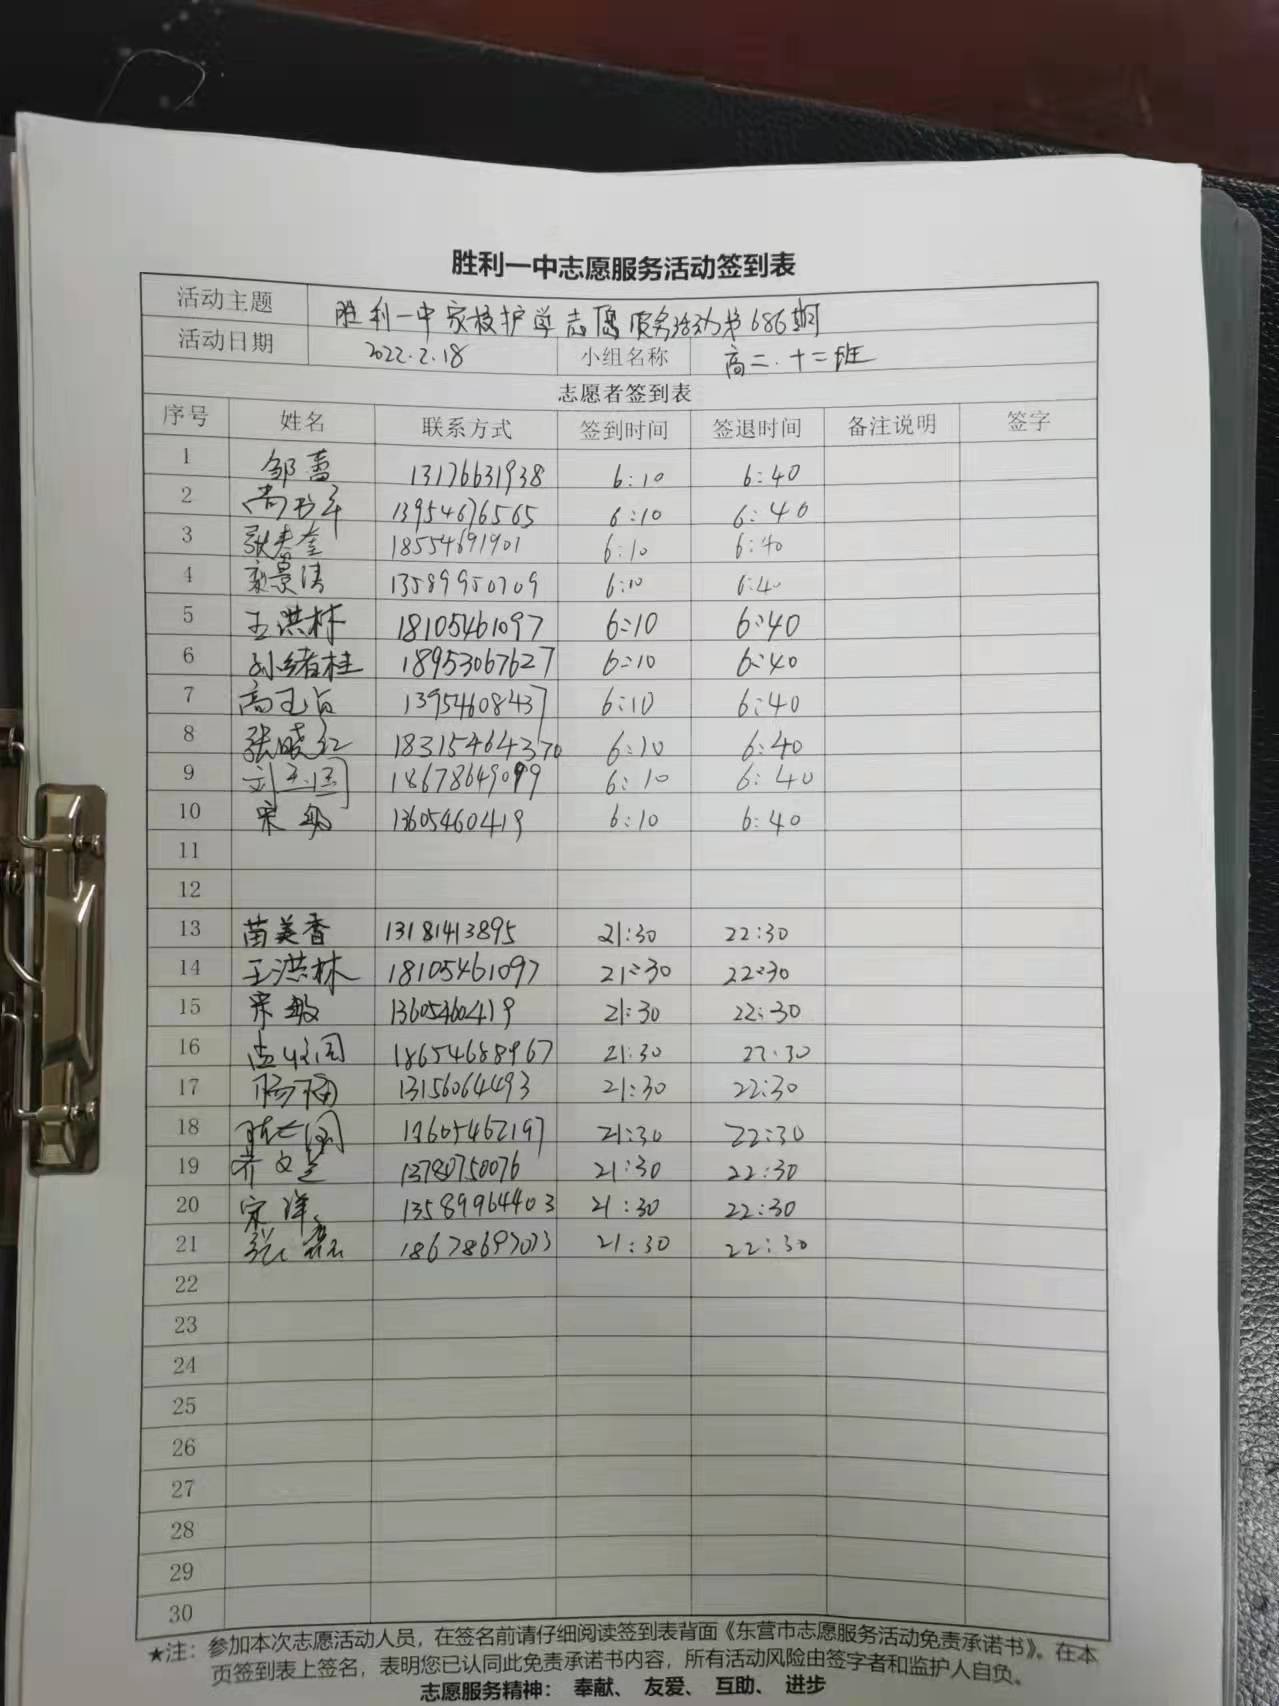 胜利一中志愿服务活动签到表
活动主题 胜利一中家校护学志愿服务活动第686期
活动日期 2022.2.18 小组名称 高二.十二班
志愿者签到表
序号 姓名 联系方式 签到时间 签退时间 备注说明 签字
1 邹蕾 13176631938 6:10 6:40
2 13954676565 6:10 6:40
3 张春奎 18554691901 6:10 6:40
4 景涛 13589950709 6:10 6:40
5 王洪林 18105461097 6:10 6:40
6 孙绪桂 18953067627 6:10 6:40
7 高玉贞 13954608437 6:10 6:40
8 张晓红 18315464370 6:10 6:40
9 刘 18678649099 6:10 6:40
10 宋敏 13605460419 6:10 6:40
11
12
13 苗美香 13181413895 21:30 22:30
14 王洪林 18105461097 21:30 22:30
15 宋敏 13605460419 21:30 22:30
16 18654688967 21:30 22:30
17 杨梅 13156064493 21:30 22:30
18 13605462197 21:30 22:30
19 13780750076 21:30 22:30
20 宋洋 13589964403 21:30 22:30
21 张磊 21:30 22:30
22
23
24
25
26
27
28
29
30
★注：参加本次志愿活动人员，在签名前请仔细阅读签到表背面《东营市志愿服务活动免责承诺书》。在本
页签到表上签名，表明您已认同此免责承诺书内容，所有活动风险由签字者和监护人自负。
志愿服务精神： 奉献、 友爱、 互助、 进步